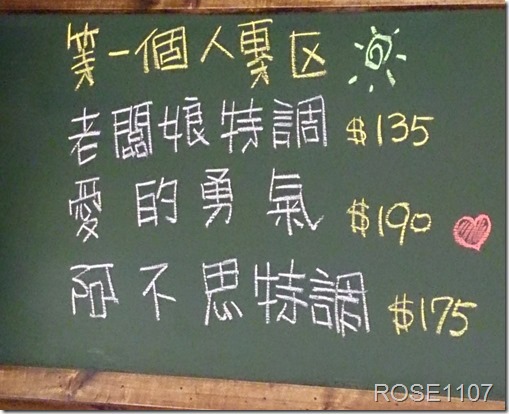 等一個人專区
老闆娘特調 $135
愛的勇氣 $190
阿不思特調 $175
ROSE1107